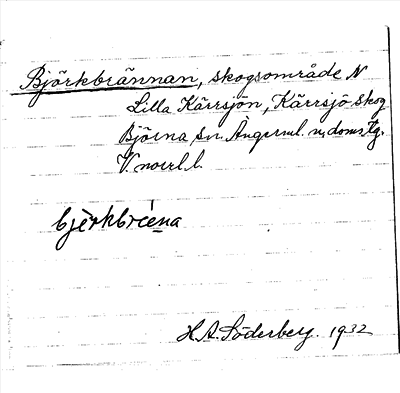 Björkbrännan, skogsområde N
Lilla Kärrsjön, Kärrsjö skog
Björna sn. Ångerml. n. doms.tg.
V. norrl. l.
bjèrkbréena
H.A. Söderberg. 1932